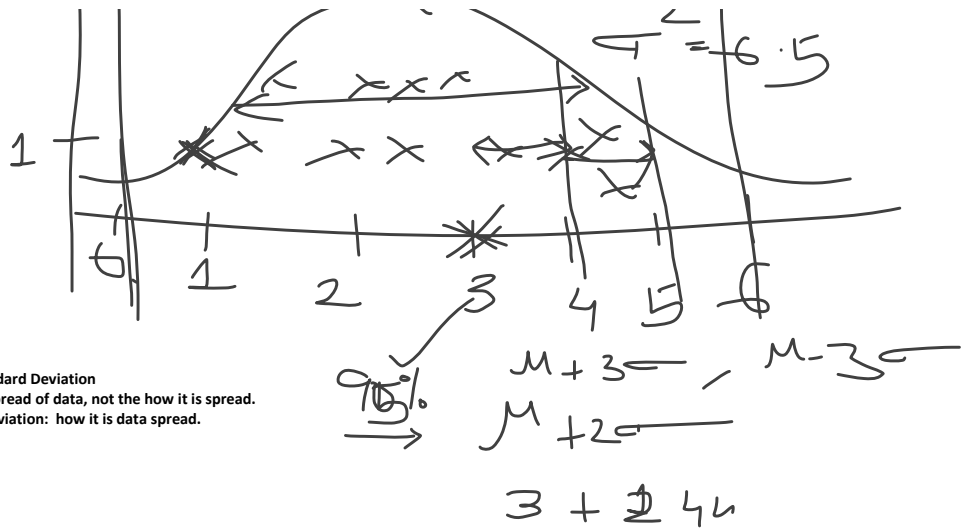 σ² = 6.5
1
0 1 2 3 4 5 6
dard Deviation
pread of data, not the how it is spread.
viation: how it is data spread.
95%
μ + 3σ , μ - 3σ
μ + 2σ
3 +